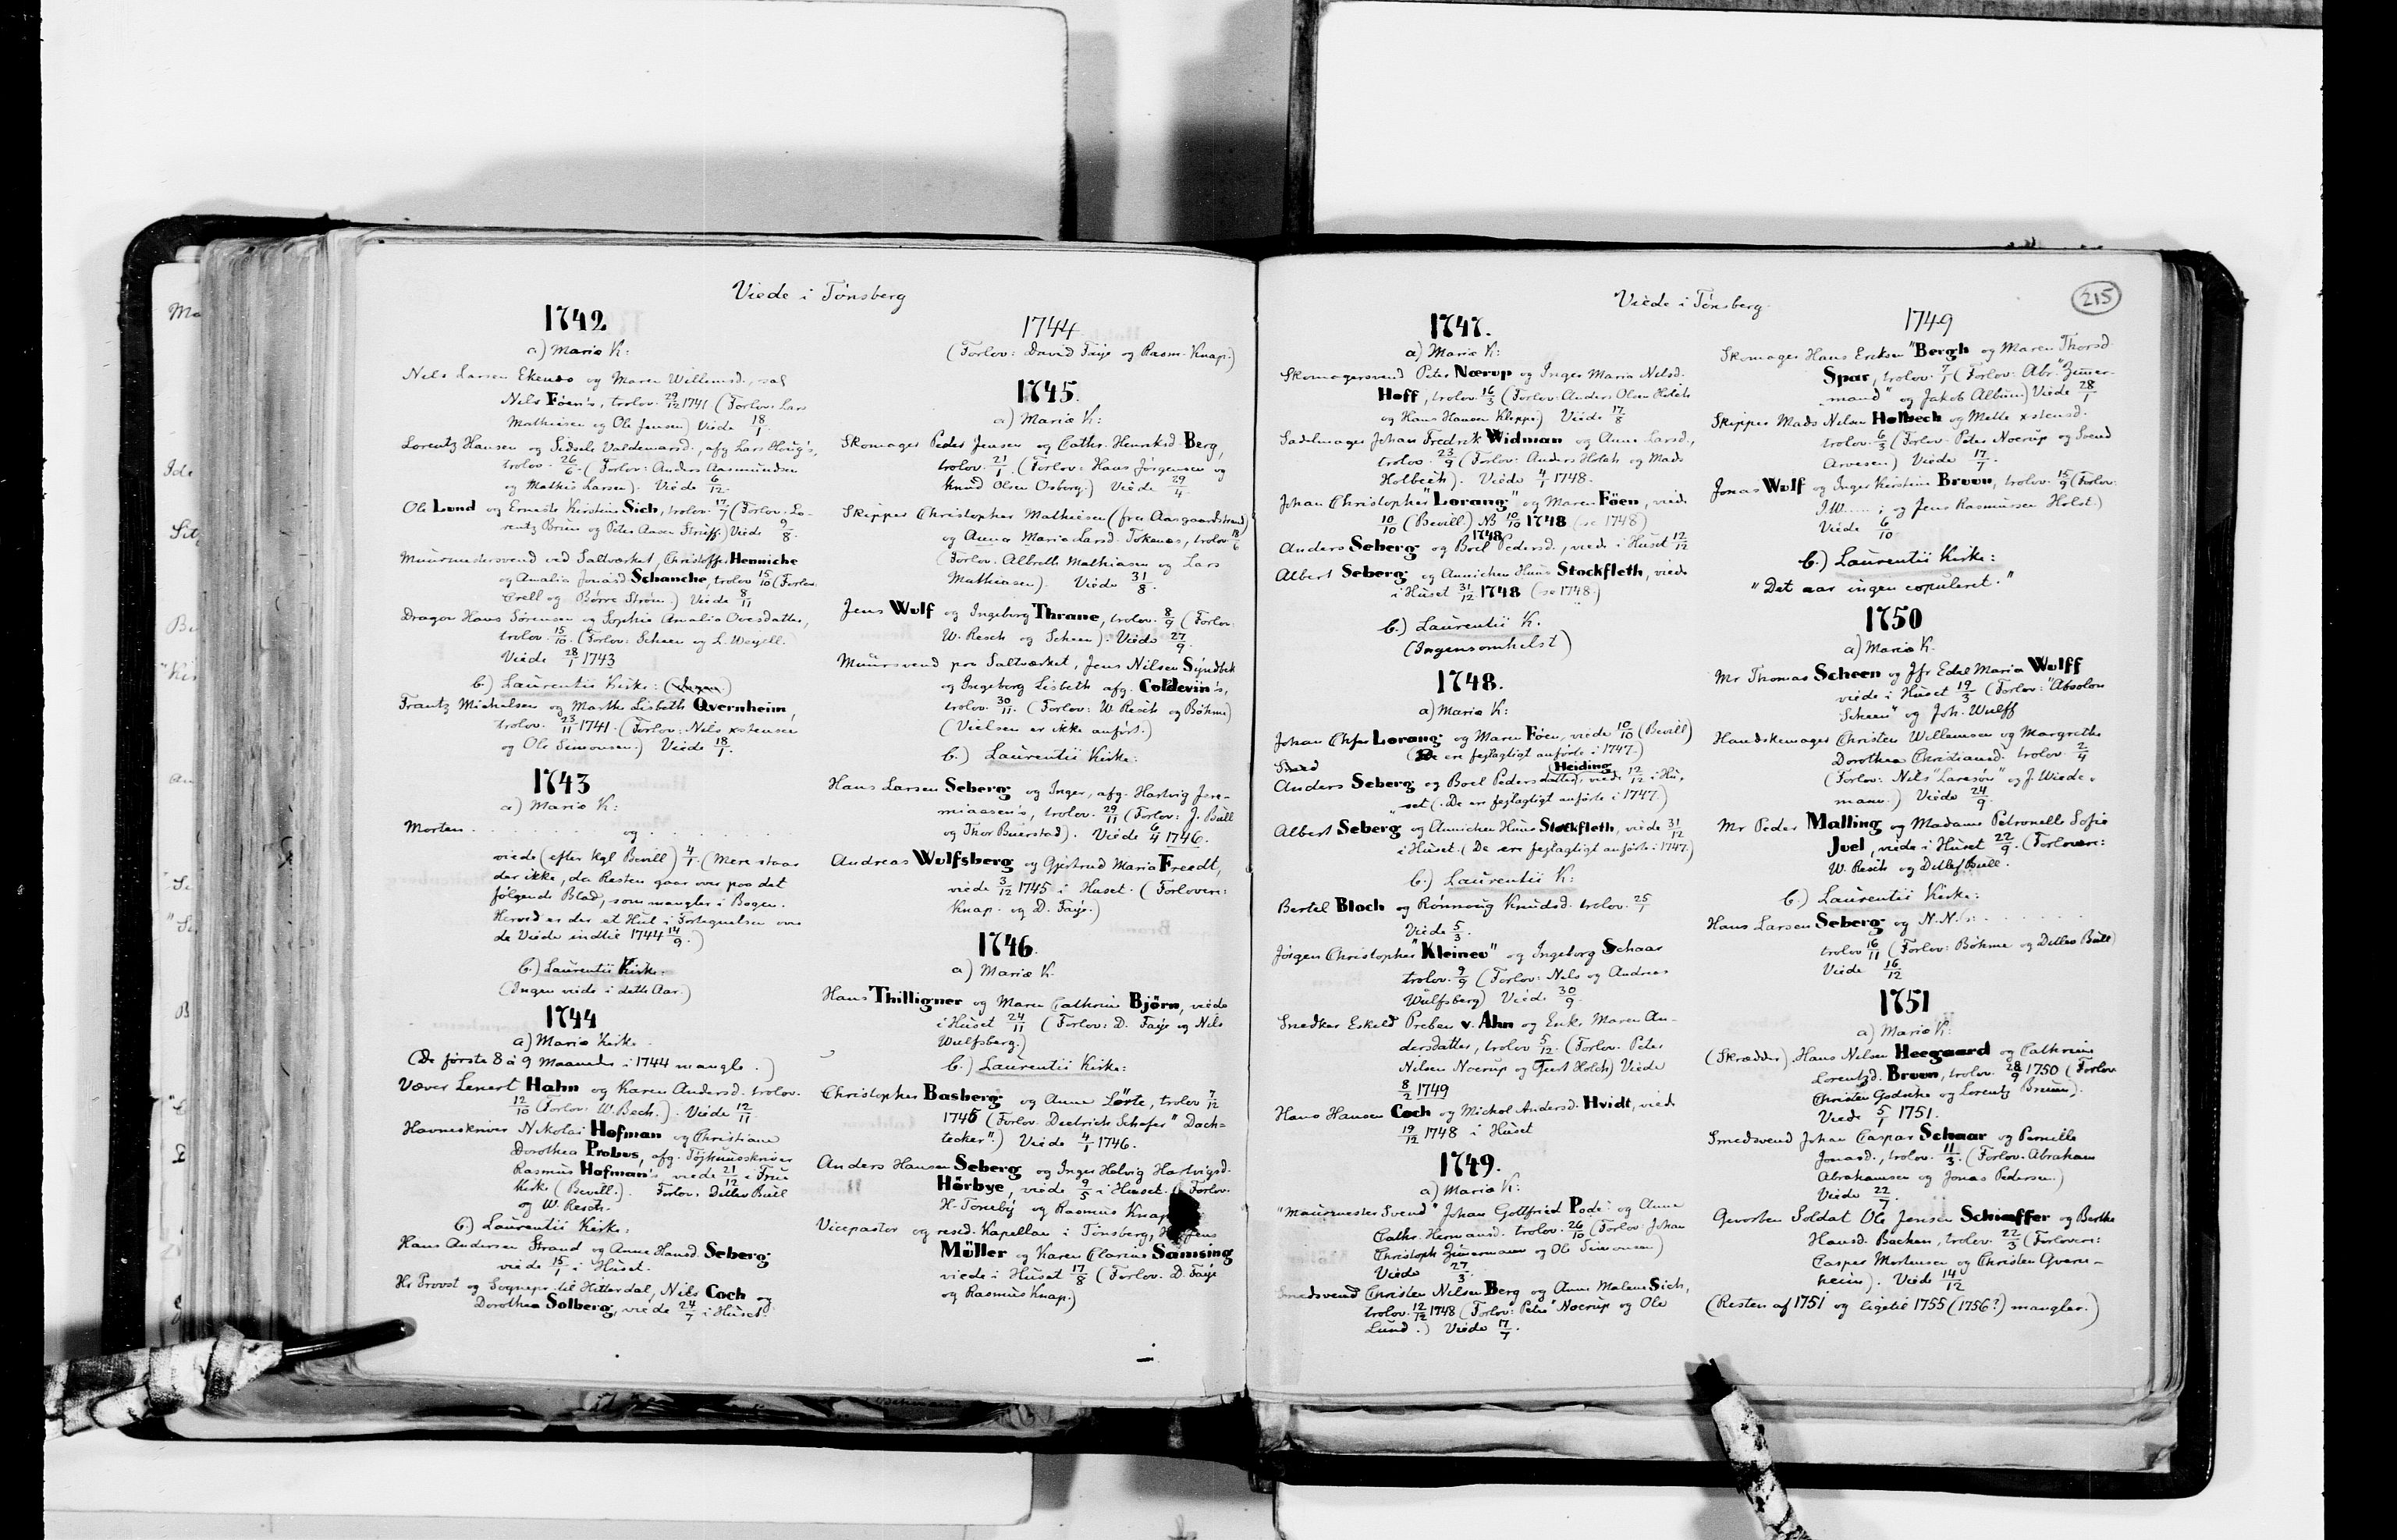 Viede i Tønsberg
1742
a) Mariæ K:
Nels Larsen Ekenæs og Maren Willemsd., sal
Nels Föen's, trolov. 29/12 1741 (Forlov: Lars
Mathiesen og Ole Jensen) Viede 18/1.
Lorentz Hansen og Sidsele Valdemarsd., afg Lars Houg's,
trolov. 26/6. (Forlov: Anders Aasmundsen
og Mathis Larsen). Viede 6/12.
Ole Lund og Erneste Kirstine Sich, trolov. 17/7 (Forlov: Lo-
rentz Brun og Peter Ansen Struff.) Viede 9/8.
Muurmestersvend ved Saltværket, Christoffer Henniche
og Amalia Jonasd. Schanche, trolov 15/10 (Forlov.
Crell og Børre Strøm.) Viede 8/11
Dragon Hans Sörensen og Sophie Amalia Ovesdatter,
trolov. 15/10. (Forlov: Scheen og L. Weyell.
Viede 28/1 1743
b.) Laurentii Kirke: (Ingen)
Frantz Michelsen og Marthe Lisbeth Qvernheim,
trolov. 23/11 1741. (Forlov: Nels xstensen
og Ole Simonsen.) Viede 18/1.
1743
a) Mariæ K:
Morten . . . . . . . og . . . . . . .
viede (efter kgl Bevill) 4/1. (Mere staar
der ikke, da Resten gaar over paa det
følgende Blad, som mangler i Bogen.
Herved er der et Hul i Fortegnelsen over
de Viede indtil 1744 14/9.)
b.) Laurentii Kirke.
(Ingen viede i dette Aar.)
1744
a) Mariæ Kirke
(De første 8 à 9 Maaneder i 1744 mangle.)
Væver Lenert Hahn og Karen Andersd. trolov.
12/10 (Forlov: W. Bech.). Viede 12/11
Havneskriver Nikolai Hofman og Christiane
Dorothea Probus, afg. Tøjhuusskriver
Rasmus Hofman's viede 21/12 i Frue
Kirke (Bevill.). Forlov: Detlev Bull
og W. Resch.
b.) Laurentii Kirke:
Hans Andersen Strand og Anne Hansd. Seberg
viede 15/1 i Huset.
Hr Provst og Sognepr. til Hitterdal, Nils Coch og
Dorothea Solberg, viede 24/7 i Huset.
1744
(Forlov: David Faye og Rasm. Knap.)
1745.
a) Mariæ K:
Skomager Peder Jensen og Cathr. Henriksd. Berg,
trolov. 21/1. (Forlov: Hans Jörgensen og
Knud Olsen Osberg.) Viede 29/4.
Skipper Christopher Mathiesen (fra Aasgaardstrand)
og Anna Maria Larsd. Tokenæs, trolov. 18/6
(Forlov. Albreth Mathiasen og Lars
Mathiasen). Viede 31/8.
Jens Wulf og Ingeborg Thrane, trolov. 8/9 (Forlov:
W. Resch og Scheen). Viede 27/9.
Muursvend paa Saltværket, Jens Nilsen Syndbek
og Ingeborg Lisbeth afg. Coldeviin's,
trolov. 30/11. (Forlov: W. Resch og Böhme)
(Vielsen er ikke anført.)
b.) Laurentii Kirke:
Hans Larsen Seberg og Inger, afg. Hartvig Jere-
miassen's, trolov. 29/11 (Forlov: J. Bull
og Thor Buerstad). Viede 6/4 1746.
Andreas Wulfsberg og Gjertrud Maria Freedt,
viede 3/12 1745 i Huset. (Forlovere:
Knap. og D. Faye.)
1746.
a) Mariæ K.
Hans Thilligner og Maren Cathrine Björn, viede
i Huset 24/11 (Forlov: D. Faye og Nils
Wulfsberg.)
b.) Laurentii Kirke:
Christopher Basberg og Anne Lørte, trolov 7/12
1745 (Forlov. Diedrich Schefer "Dach=
tecker".) Viede 4/1 1746.
Anders Hansen Seberg og Inger Helvig Hartvigsd.
Hörbye, viede 9/5 i Huset. (Forlov.
H. Toneby og Rasmus Knap
Vicepastor og resid. Kapellan i Tönsberg, Hr Jens
Müller og Karen Clarine Samsing
viede i Huset 17/8 (Forlov. D. Faye
og Rasmus Knap.)
Viede i Tønsberg.
215
1747.
a) Mariæ K:
Skomagersvend Peter Nærup og Inger Maria Nelsd.
Hoff, trolov. 16/3 (Forlov: Anders Olsen Holch
og Hans Hansen Kleppe) Viede 17/8
Sadelmager Johan Fredrik Widman og Anne Larsd.,
trolov. 23/9 (Forlov. Anders Holch og Mads
Holbech). Viede 4/1 1748.
Johan Christopher "Lorang" og Maren Föen, viede
10/10 (Bevill) NB 10/10 1748 (se 1748)
Anders Seberg og Boel Pedersd., viede i Huset 12/12
1748
Albert Seberg og Annichen Huus Stockfleth, viede
i Huset 31/12 1748 (se 1748.)
b.) Laurentii K.
(Ingensomhelst)
1748.
a) Mariæ K:
Johan Chfer Lorang og Maren Föen, viede 10/10 (Bevill)
(De ere fejlagtigt anførte i 1747.)
Smed
Anders Seberg og Boel Pedersdatter Heiding, viede 12/12 i Hu-
set (. De ere fejlagtigt anførte i 1747.)
Albert Seberg og Annichen Huus Stockfleth, viede 31/12
i Huset. (De ere fejlagtigt anførte i 1747.)
b.) Laurentii K:
Bertel Bloch og Rönnoug Knudsd. trolov. 25/1
Viede 5/3.
Jörgen Christopher "Kleinev" og Ingeborg Schaar
trolov. 9/9 (Forlov: Nels og Andreas
Wulfsberg) Viede 30/9.
Snedker Eskeld Preben v. Ahn og Enke Maren An-
dersdatter, trolov 5/12. (Forlov. Peter
Nilsen Noerup og Gert Holch) Viede
8/2 1749
Hans Hansen Coch og Michol Andersd. Hvidt, viede
19/12 1748 i Huset
1749.
a) Mariæ K:
"Mauermester Svend" Johan Gottfried Pode og Anne
Cathr. Hermansd. trolov. 26/10 (Forlov Johan
Christoph Zimermann og Ole Simonsen)
Viede 27/3.
Smedsvend Christen Nilsen Berg og Anne Malene Sich,
trolov. 12/12 1748 (Forlov: Peter Noerup og Ole
Lund.) Viede 17/7.
1749
Skomager Hans Eriksen "Bergh og Maren Thorsd.
Spar, trolov. 7/1 (Forlov: Abr. "Zimer-
mand" og Jakob Album) Viede 28/1
Skipper Mads Nelsen Holbech og Mette xstensd.
trolov. 6/3 (Forlov: Peter Noerup og Svend
Arvesen) Viede 17/7.
Jonas Wulf og Inger Kirstine Bruun, trolov. 15/9 (Forlov:
J. W..... i og Jens Rasmussen Holst.)
Viede 6/10
b.) Laurentii Kirke:
"Det aar ingen copuleret."
1750
a) Mariæ K.
Mr Thomas Scheen og Jfr Edel Maria Wulff
viede i Huset 19/3 (Forlov: "Absolon
Scheen" og Joh. Wulff
Handskemager Christen Willemsen og Margrethe
Dorothea Christiansd. trolov. 2/4
(Forlov: Nils "Larssøn" og J. Wiede-
mann.) Viede 24/9.
Mr Peder Malling og Madame Petronelle Sofie
Juel, viede i Huset 22/9. (Forlovere:
W. Resch og Detlef Bull.
b.) Laurentii Kirke:
Hans Larsen Seberg og N.N. . . . . . . .
trolov 16/11 (Forlov: Böhme og Detlev Bull)
Viede 16/12
1751
a) Mariæ K:
(Skrædder) Hans Nelsen Heegaard og Cathrine
Lorentzd. Bruun, trolov. 28/9 1750 (Forlov
Christen Godsche og Lorentz Bruun).
Viede 5/1 1751.
Smedsvend Johan Caspar Schaar og Pernille
Jonasd., trolov. 11/3. (Forlov. Abraham
Abrahamsen og Jonas Pedersen.)
Viede 22/7
Gevorben Soldat Ole Jensen Schiæffer og Berthe
Hansd. Backen, trolov. 22/3 (Forlovere:
Casper Mortensen og Christen Qvern-
heim). Viede 14/12
(Resten af 1751 og ligetil 1755 (1756?) mangler.)